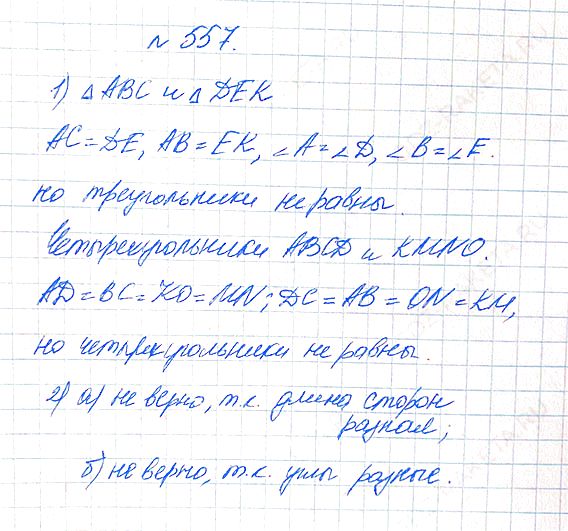 № 557.
1) △ ABC и △ DEK
AC = DE, AB = EK, ∠A = ∠D, ∠B = ∠E.
но треугольники не равны.
Четырехугольники ABCD и KMNO.
AD = BC = KO = MN; DC = AB = ON = KM,
но четырехугольники не равны.
2) а) не верно, т.к. длина сторон
разная;
б) не верно, т.к. углы разные.